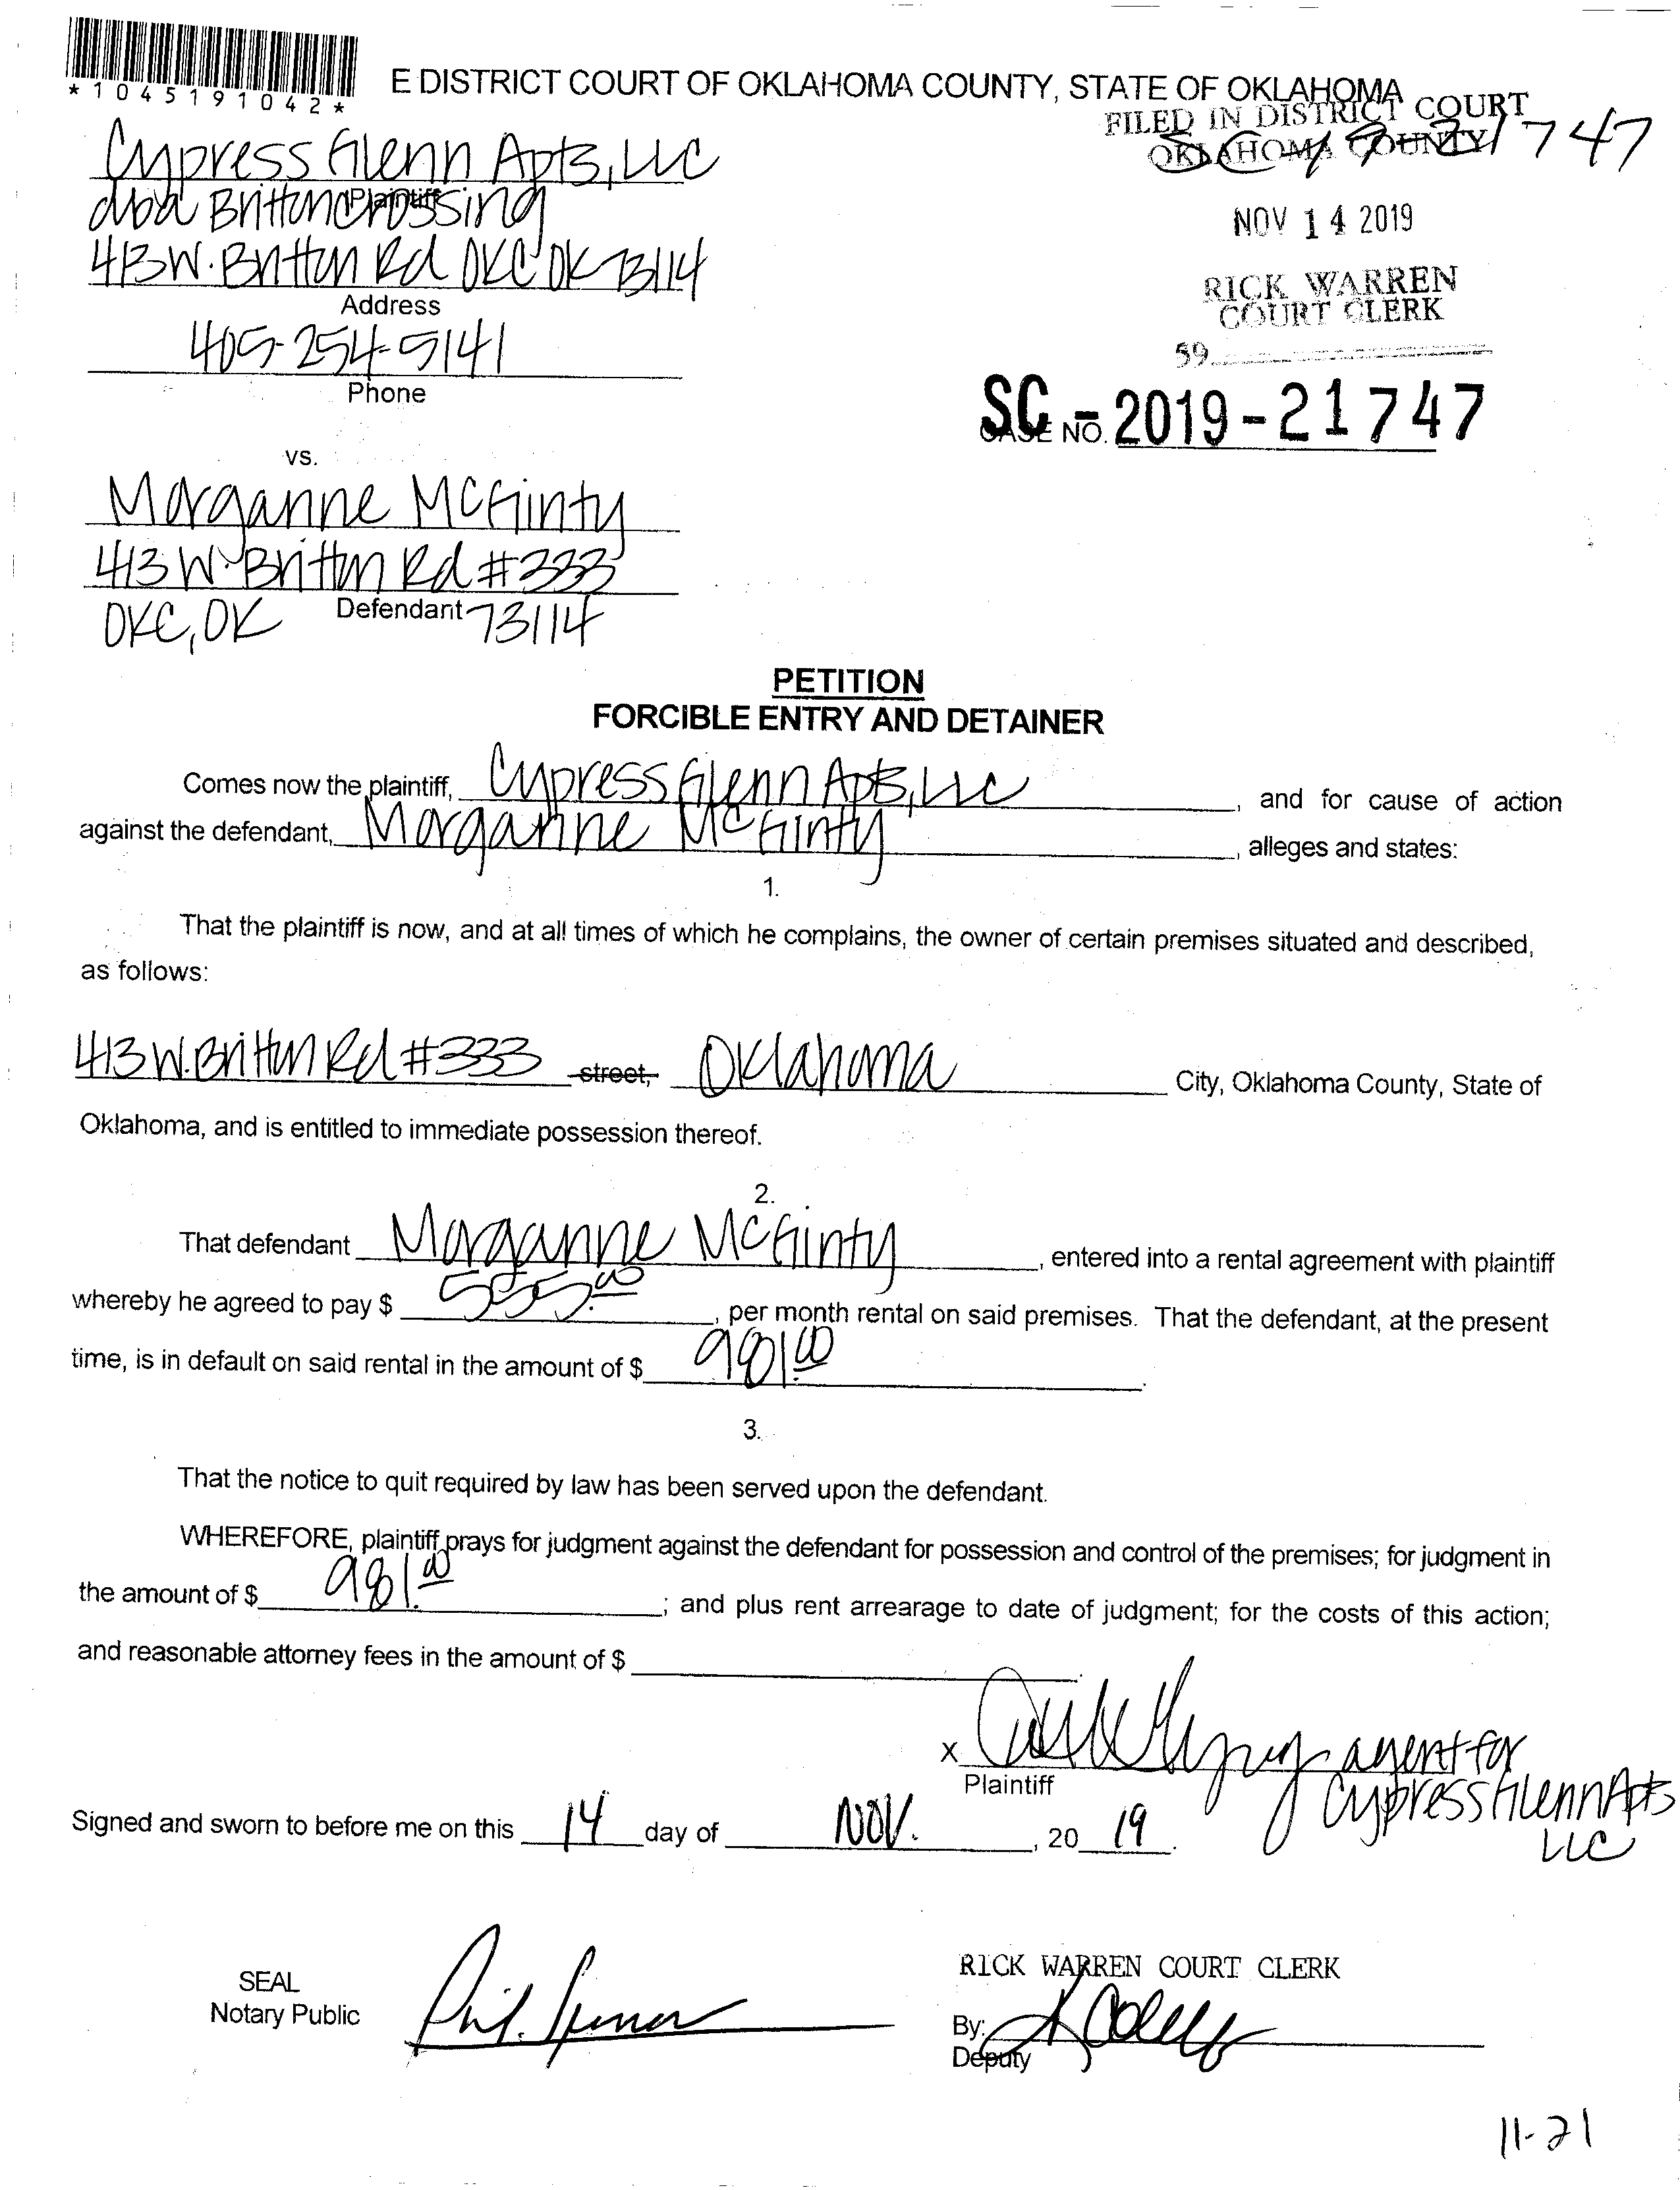 *1045191042*
E DISTRICT COURT OF OKLAHOMA COUNTY, STATE OF OKLAHOMA
FILED IN DISTRICT COURT
OKLAHOMA COUNTY
SC-19-21747
Cypress Glenn Apts, LLC
Plaintiff
dba Britton Crossing
413 W. Britton Rd OKC OK 73114
Address
405-254-5141
Phone
NOV 14 2019
RICK WARREN
COURT CLERK
59
SC-2019-21747
CASE NO.
vs.
Morganne McGinty
413 W. Britton Rd #333
OKC, OK 73114
Defendant
PETITION
FORCIBLE ENTRY AND DETAINER
Comes now the plaintiff, Cypress Glenn Apts, LLC, and for cause of action
against the defendant, Morganne McGinty, alleges and states:
1.
That the plaintiff is now, and at all times of which he complains, the owner of certain premises situated and described,
as follows:
413 W. Britton Rd #333 street, Oklahoma City, Oklahoma County, State of
Oklahoma, and is entitled to immediate possession thereof.
2.
That defendant Morganne McGinty, entered into a rental agreement with plaintiff
whereby he agreed to pay $ 555.00, per month rental on said premises. That the defendant, at the present
time, is in default on said rental in the amount of $ 981.00.
3.
That the notice to quit required by law has been served upon the defendant.
WHEREFORE, plaintiff prays for judgment against the defendant for possession and control of the premises; for judgment in
the amount of $ 981.00; and plus rent arrearage to date of judgment; for the costs of this action;
and reasonable attorney fees in the amount of $
x agent for
Plaintiff
Cypress Glenn Apts
LLC
Signed and sworn to before me on this 14 day of NOV., 20 19.
SEAL
Notary Public
RICK WARREN COURT CLERK
By:
Deputy
11-21